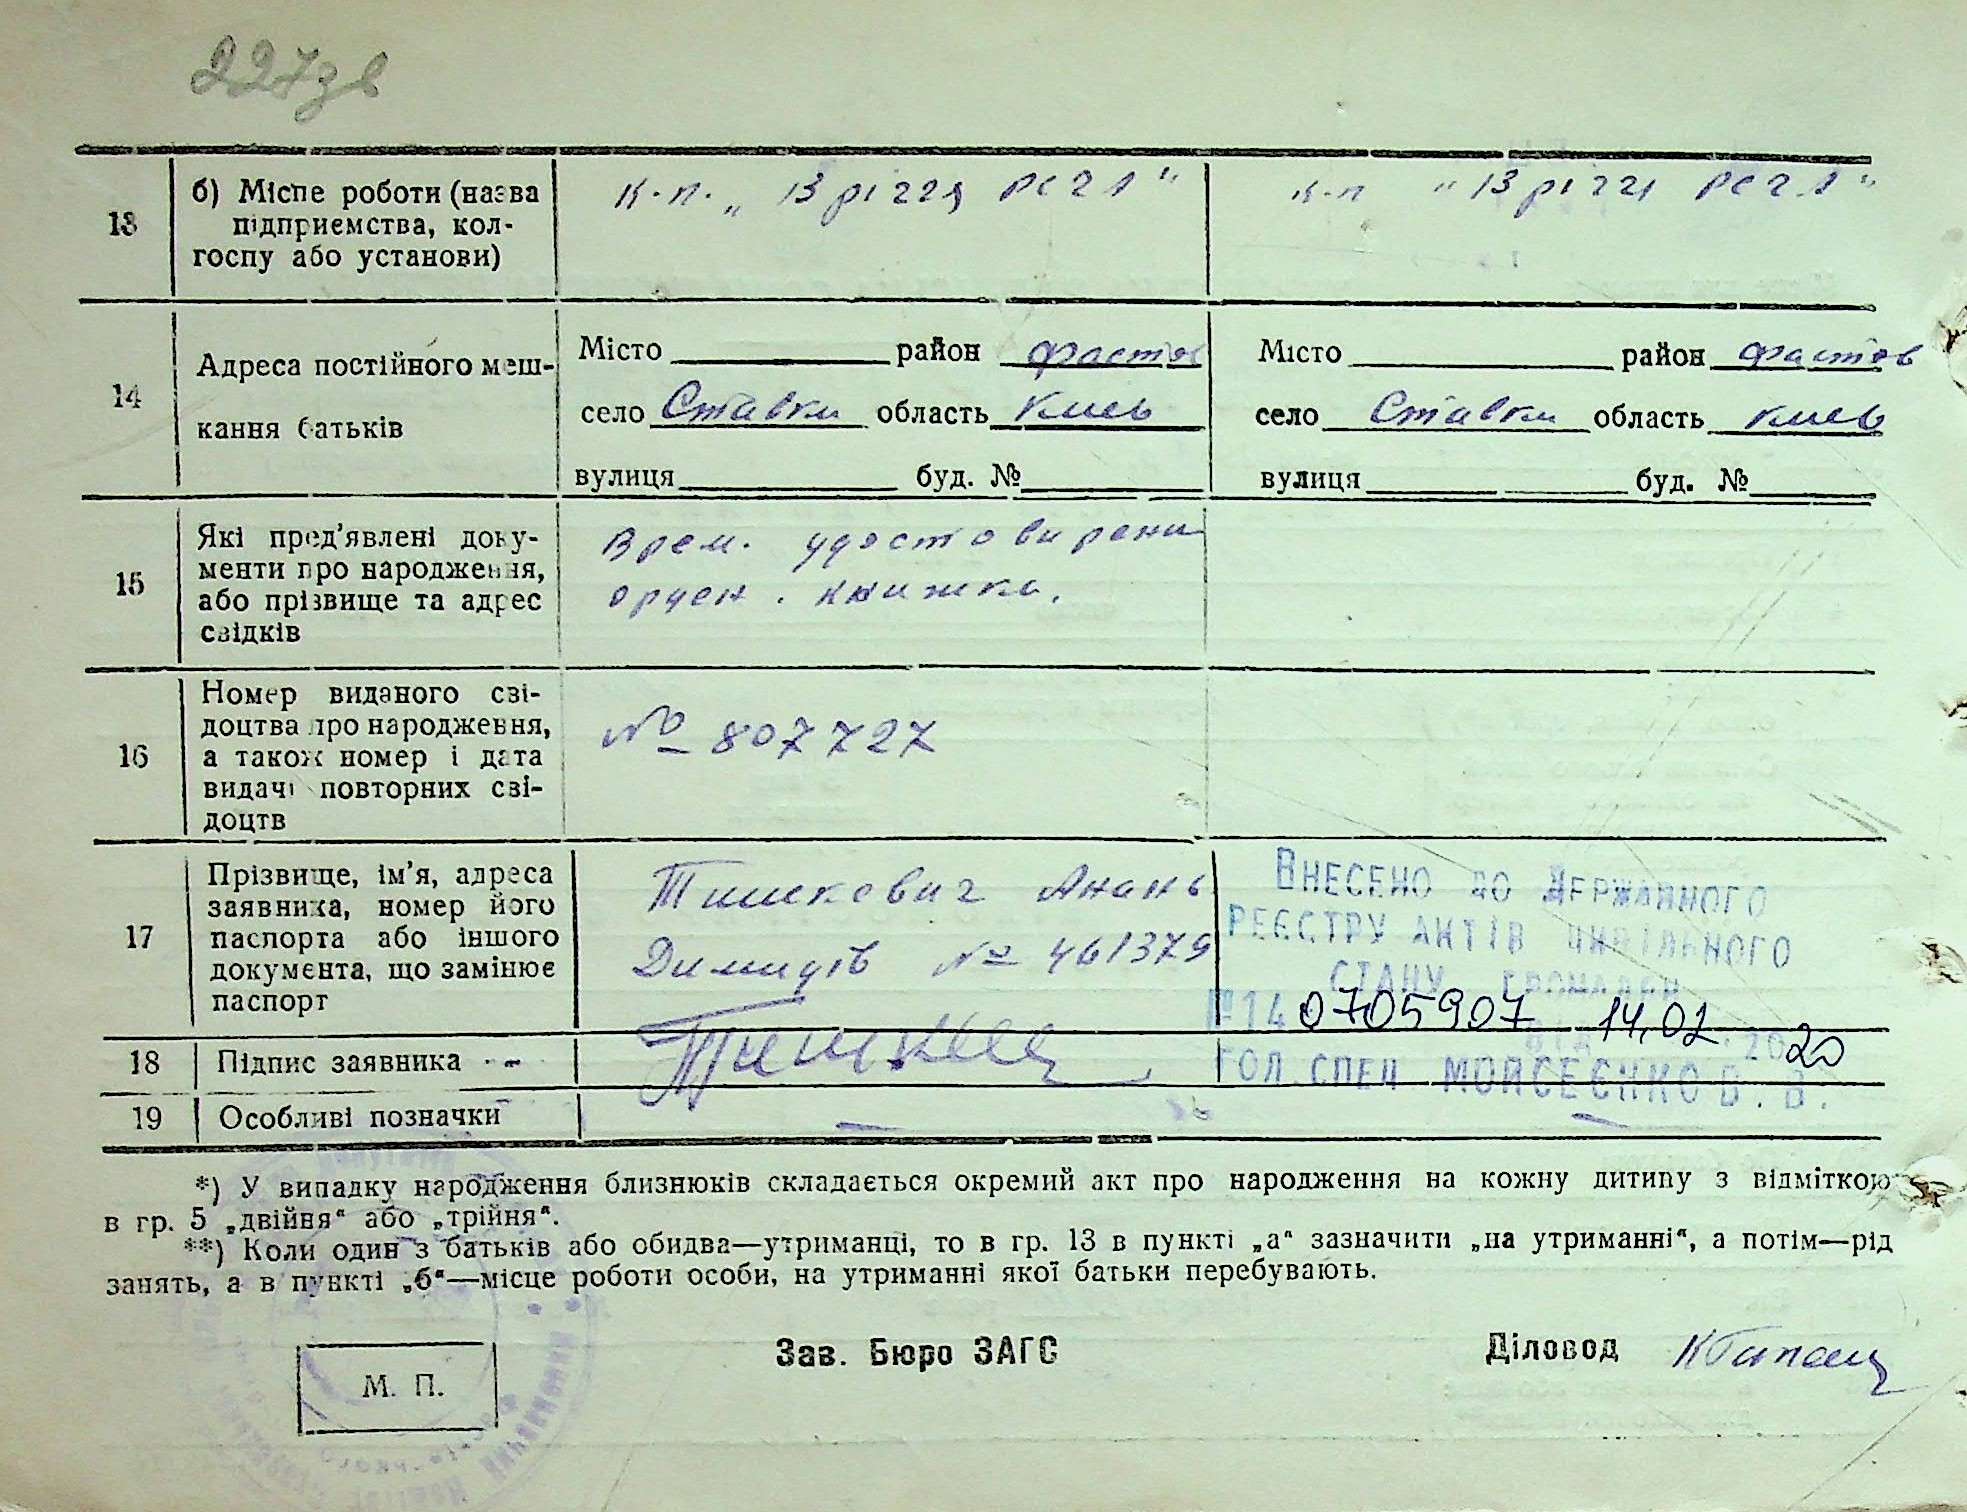 227зв
13
б) Місце роботи (назва
підприємства, кол-
госпу або установи)
к.п. „13 річчя РСЧА"
к.п "13 річчя РСЧА"
14
Адреса постійного меш-
кання батьків
Місто район Фастов
село Ставки область Киев
вулиця буд. №
Місто район Фастов
село Ставки область Киев
вулиця буд. №
15
Які пред'явлені доку-
менти про народження,
або прізвище та адрес
свідків
Врем. удостовирени
орден. книжка.
16
Номер виданого сві-
доцтва про народження,
а також номер і дата
видачі повторних сві-
доцтв
№ 807727
17
Прізвище, ім'я, адреса
заявника, номер його
паспорта або іншого
документа, що замінює
паспорт
Тишкевич Анань
Димидів № 461379
Внесено до Державного
реєстру актів цивільного
стану громадян
№ 14 0705907 від 14.02.2020
гол. спец Мойсеєнко В. В.
18
Підпис заявника
19
Особливі позначки
*) У випадку народження близнюків складається окремий акт про народження на кожну дитину з відміткою
в гр. 5 „двійня" або „трійня".
**) Коли один з батьків або обидва—утриманці, то в гр. 13 в пункті „а" зазначити „на утриманні", а потім—рід
занять, а в пункті „б"—місце роботи особи, на утриманні якої батьки перебувають.
М. П.
Зав. Бюро ЗАГС
Діловод